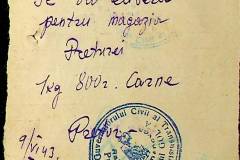 Se va elibera
pentru magazia
Preturei
1 kg 800 gr. Carne
Pretor
9/VI 43.
Guvernământul Civil al Transnistriei